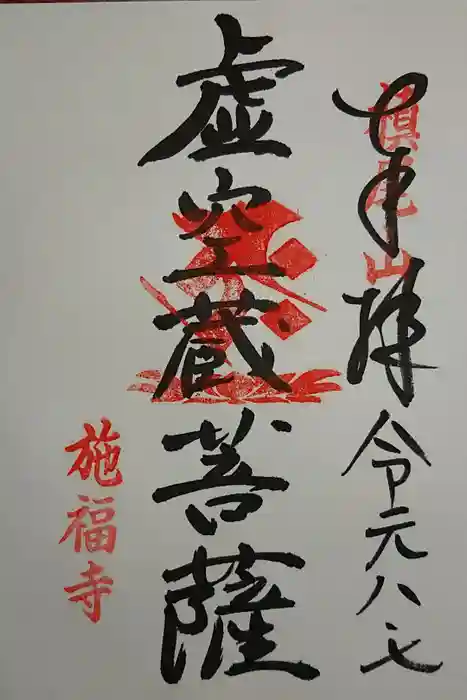 奉拝 令元八七
槙尾山
虚空蔵菩薩
施福寺